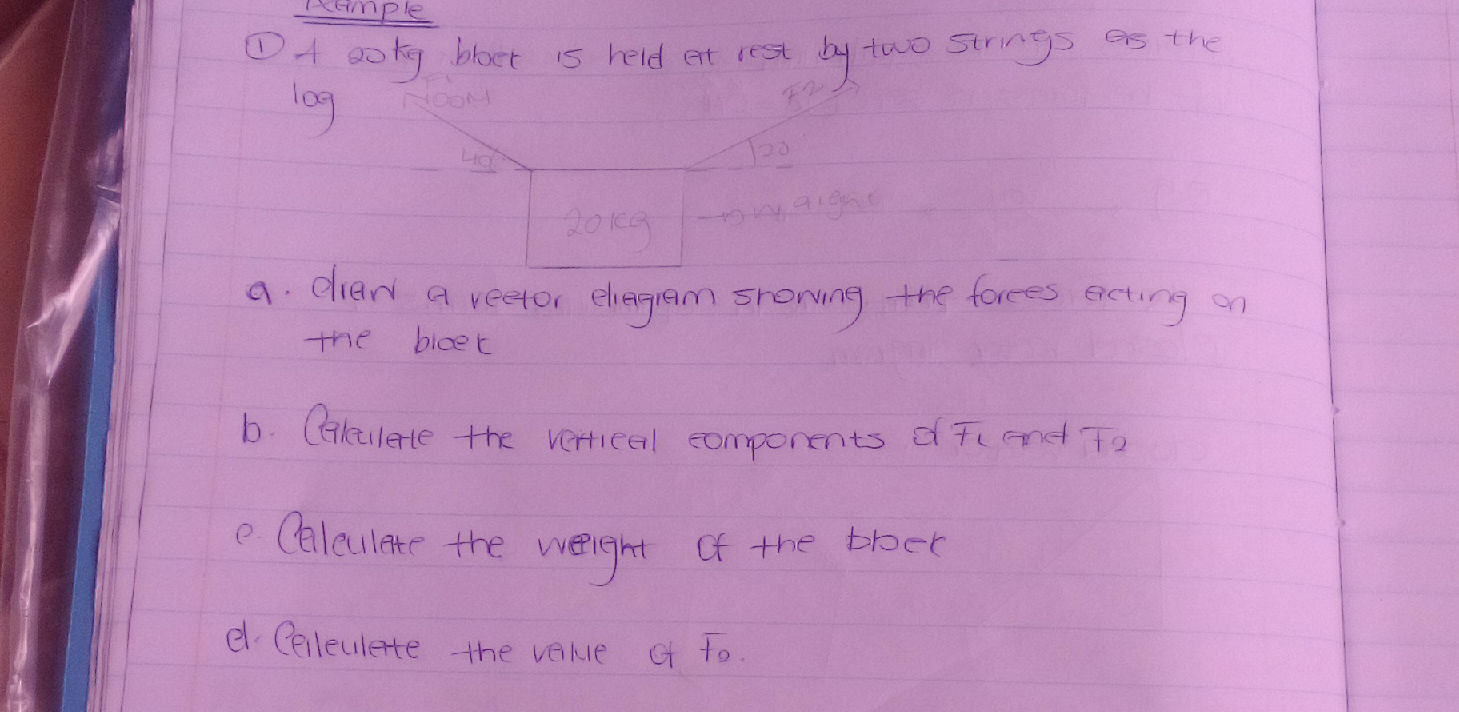 Example
① A 20kg block is held at rest by two strings as the
log
F2
40
20
20kg
a. draw a vector diagram showing the forces acting on
the block
b. Calculate the vertical components of F1 and F2
c. Calculate the weight of the block
d. Calculate the value of F2.